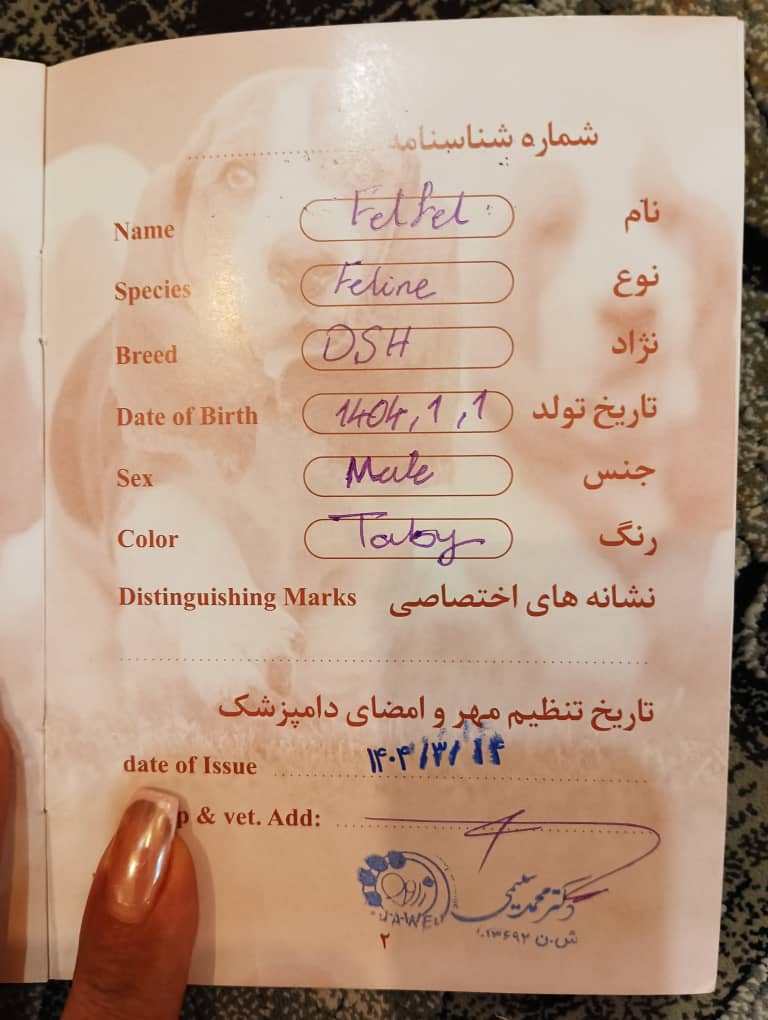 شماره شناسنامه
Name FelFel نام
Species Feline نوع
Breed DSH نژاد
Date of Birth 1404,1,1 تاریخ تولد
Sex Male جنس
Color Taby رنگ
Distinguishing Marks نشانه های اختصاصی
تاریخ تنظیم مهر و امضای دامپزشک
date of Issue ۱۴۰۴/۳/۱۴
p & vet. Add:
دکتر محمد سلیمی
ش.ن ۱۳۶۹۲
۲